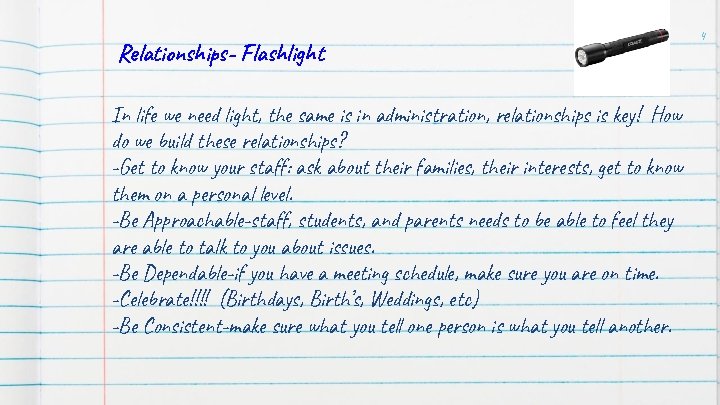 4
Relationships- Flashlight
In life we need light, the same is in administration, relationships is key! How
do we build these relationships?
-Get to know your staff: ask about their families, their interests, get to know
them on a personal level.
-Be Approachable-staff, students, and parents needs to be able to feel they
are able to talk to you about issues.
-Be Dependable-if you have a meeting schedule, make sure you are on time.
-Celebrate!!!! (Birthdays, Birth's, Weddings, etc)
-Be Consistent-make sure what you tell one person is what you tell another.